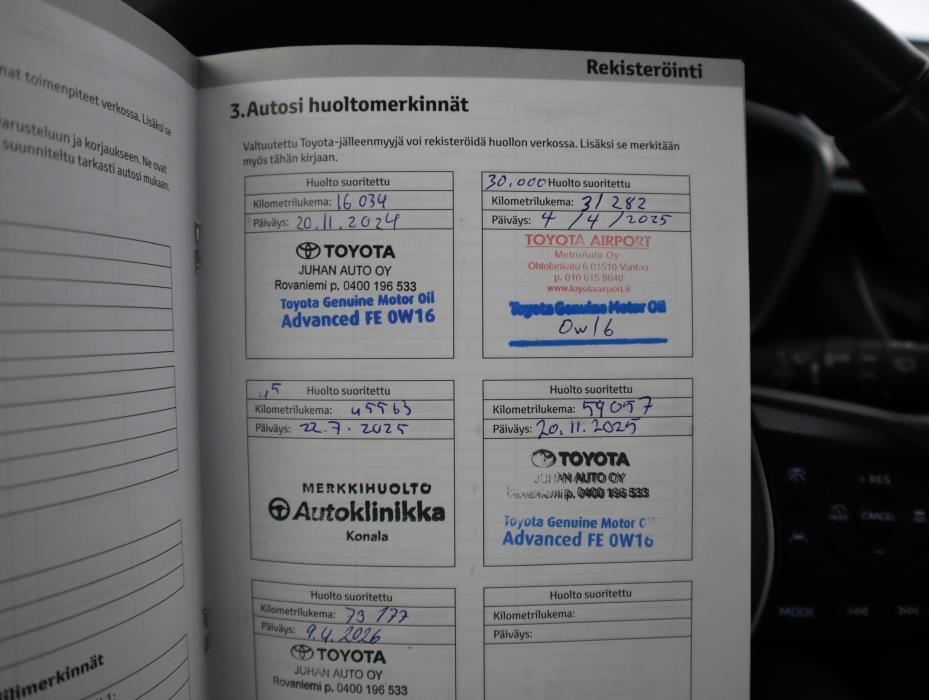 nat toimenpiteet verkossa. Lisäksi se
varusteluun ja korjaukseen. Ne ovat
suunniteltu tarkasti autosi mukaan.
Rekisteröinti
3.Autosi huoltomerkinnät
Valtuutettu Toyota-jälleenmyyjä voi rekisteröidä huollon verkossa. Lisäksi se merkitään
myös tähän kirjaan.
Huolto suoritettu
Kilometrilukema: 16 034
Päiväys: 20.11.2024
TOYOTA
JUHAN AUTO OY
Rovaniemi p. 0400 196 533
Toyota Genuine Motor Oil
Advanced FE 0W16
30.000 Huolto suoritettu
Kilometrilukema: 31282
Päiväys: 4/4/2025
TOYOTA AIRPORT
MetroAuto Oy
Ohtolankatu 6 01510 Vantaa
p. 010 615 8640
www.toyotaairport.fi
Toyota Genuine Motor Oil
0w16
45 Huolto suoritettu
Kilometrilukema: 45563
Päiväys: 22.7.2025
MERKKIHUOLTO
Autoklinikka
Konala
Huolto suoritettu
Kilometrilukema: 59057
Päiväys: 20.11.2025
TOYOTA
JUHAN AUTO OY
Rovaniemi p. 0400 196 533
Toyota Genuine Motor O
Advanced FE 0W16
Huolto suoritettu
Kilometrilukema: 73 177
Päiväys: 9.4.2026
TOYOTA
JUHAN AUTO OY
Rovaniemi p. 0400 196 533
Huolto suoritettu
Kilometrilukema:
Päiväys:
+RES
CANCEL
MODE